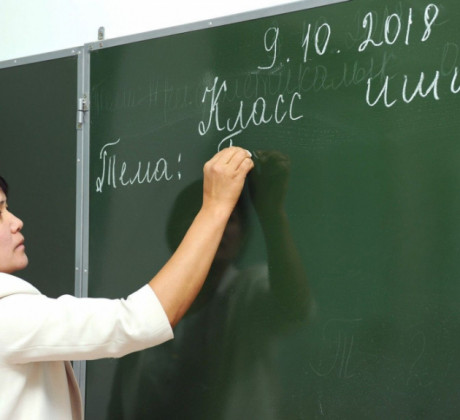 9.10.2018
Класс иши
Тема: